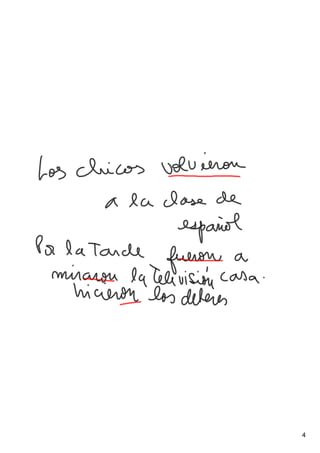 Los chicos volvieron
a la clase de
español
Por la Tarde fueron a
miraron la Televisión casa.
hicieron los deberes
4